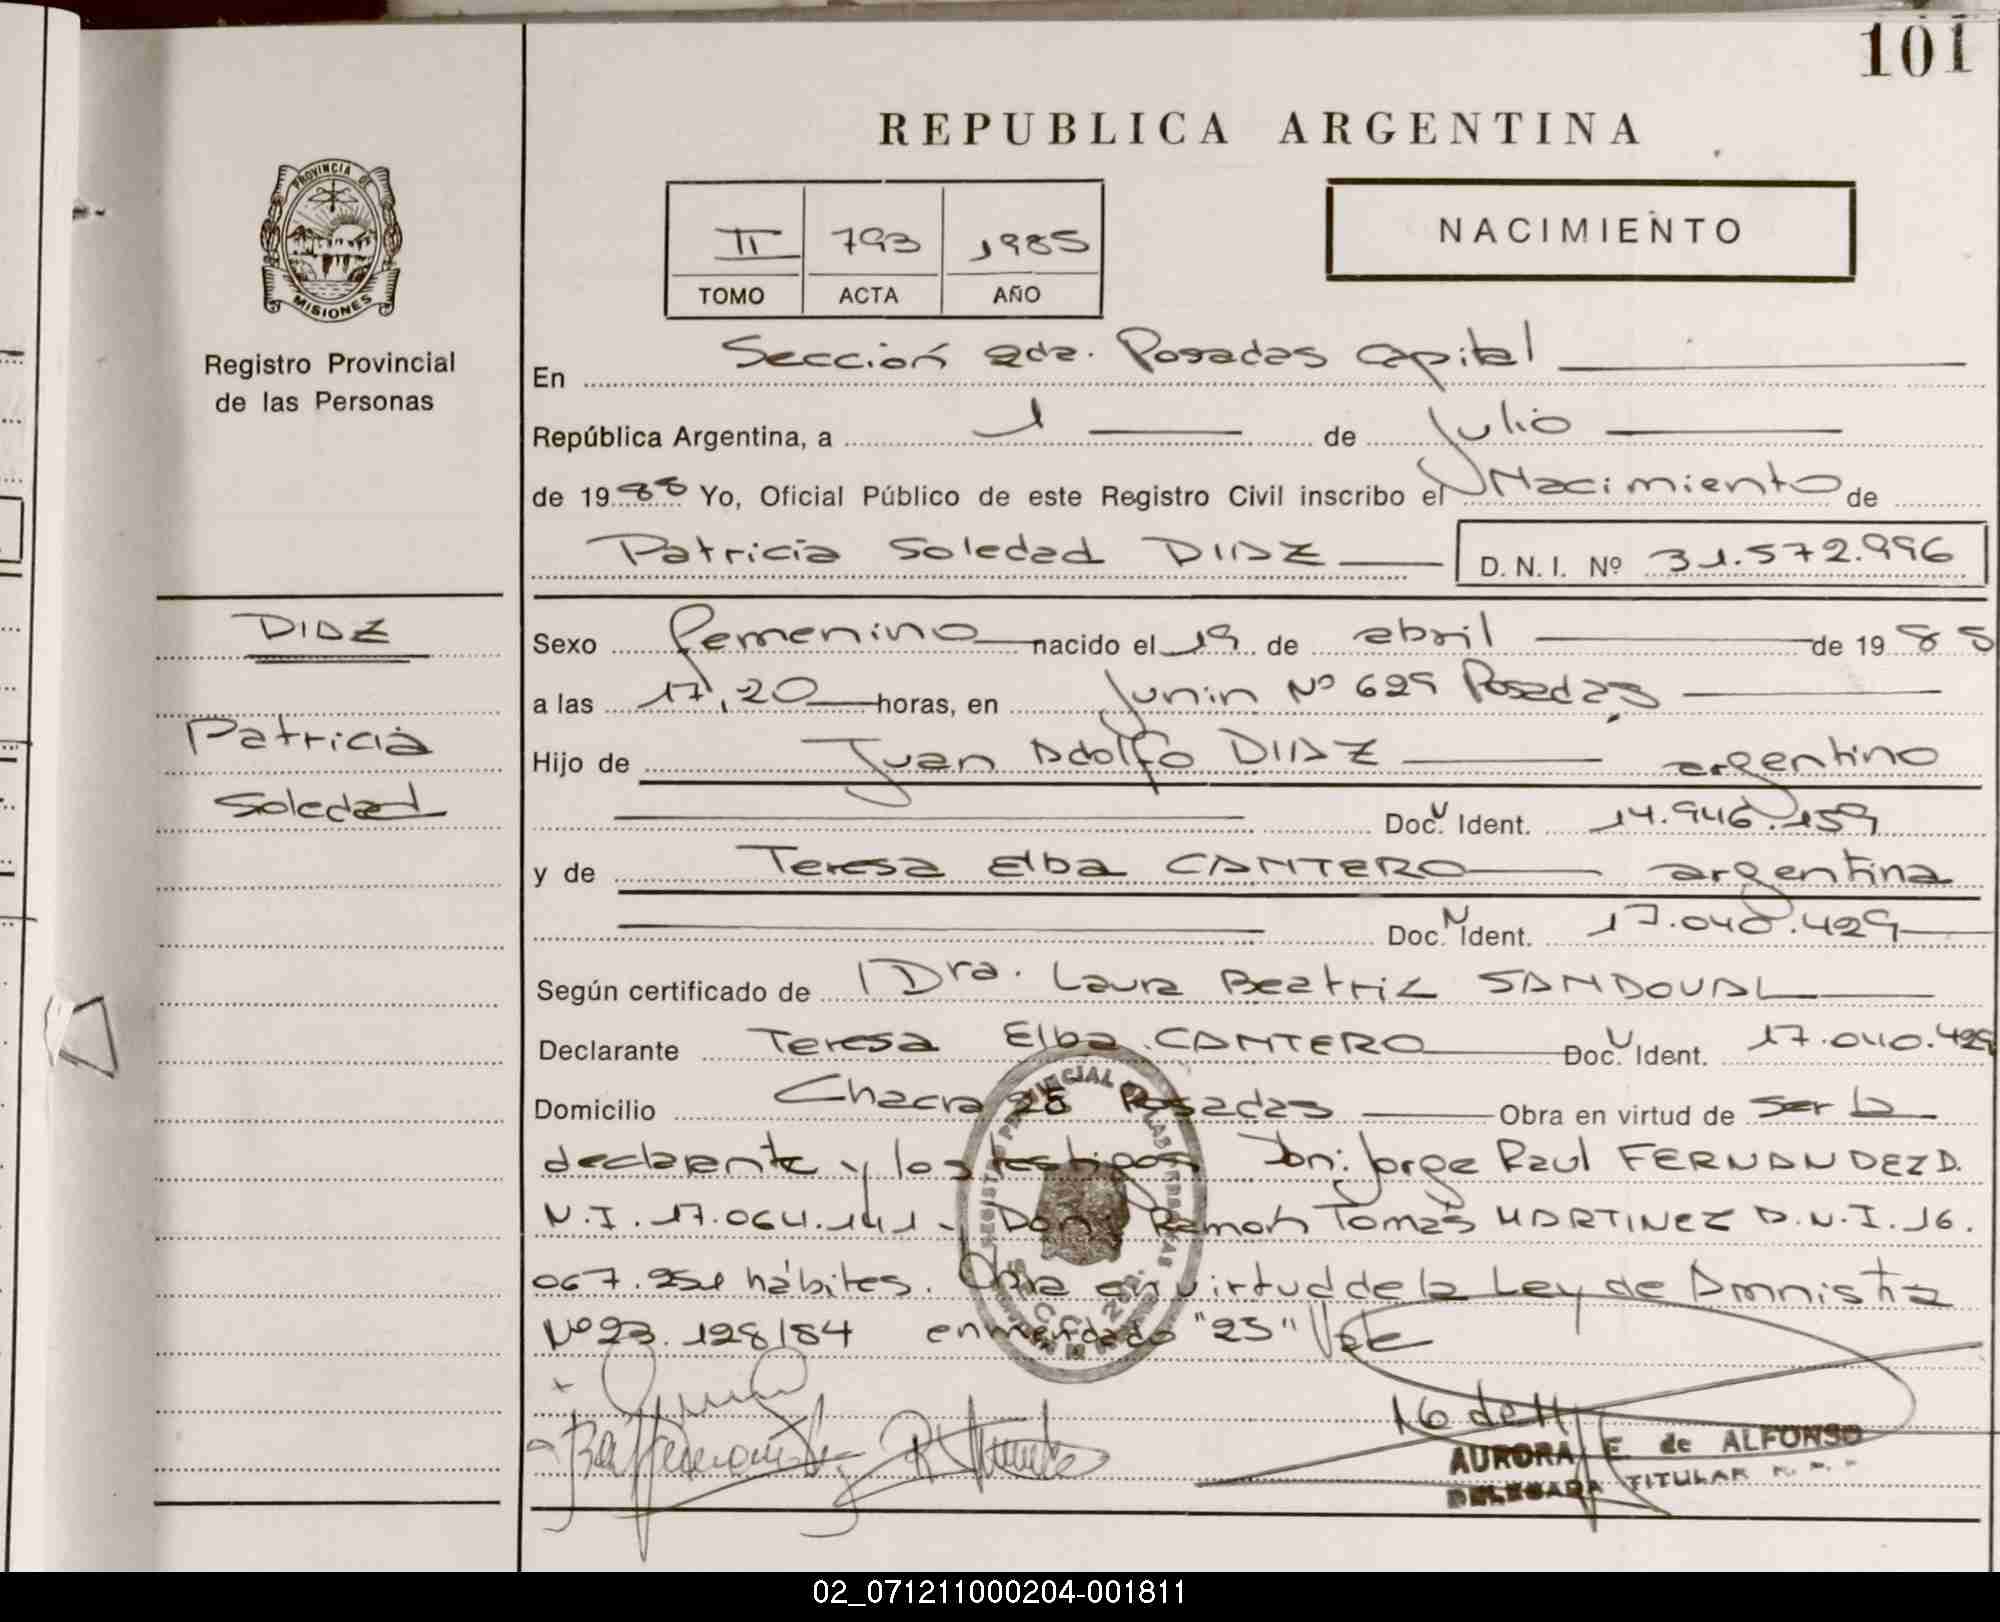 101
REPUBLICA ARGENTINA
PROVINCIA DE
MISIONES
Registro Provincial
de las Personas
II 793 1985
TOMO ACTA AÑO
NACIMIENTO
En Sección 2da. Posadas Capital
República Argentina, a 1 de Julio
de 1985 Yo, Oficial Público de este Registro Civil inscribo el Nacimiento de
Patricia Soledad DIAZ D. N. I. Nº 31.572.996
DIAZ
Patricia
Soledad
Sexo femenino nacido el 19 de abril de 1985
a las 17,20 horas, en Junin Nº 629 Posadas
Hijo de Juan Adolfo DIAZ argentino
Doc. Ident. 14.946.159
y de Teresa Elba CANTERO argentina
Doc. Ident. 17.040.429
Según certificado de Dra. Laura Beatriz SANDOVAL
Declarante Teresa Elba CANTERO Doc. Ident. 17.040.429
Domicilio Chacra 25 Posadas Obra en virtud de ser la
declarante y los testigos Don: Jorge Raul FERNANDEZ D.
N.I. 17.064.141 - Don Ramón Tomás MARTINEZ D.N.I. 16.
067.951 hábiles. Obra en virtud de la Ley de Amnistia
Nº 23.128/84 enmendado "25" Vale
AURORA E. de ALFONSO
DELEGADA TITULAR
02_071211000204-001811